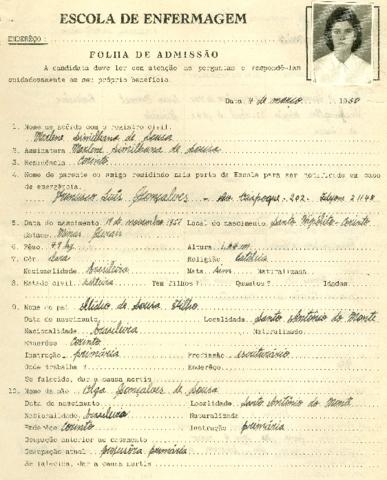 ESCOLA DE ENFERMAGEM
ENDEREÇO:
FOLHA DE ADMISSÃO
A candidata deve ler com atenção as perguntas e respondê-las
cuidadosamente em seu próprio benefício.
Data, 4 de março, 1950
1. Nome de acôrdo com o registro civil.
Marlene de Sousa
2. Assinatura Marlene de Sousa
3. Residência Corinto
4. Nome de parente ou amigo residindo mais perto da Escola para ser notificado em caso
de emergência.
Francisco Luis Gonçalves - Av. - 202 -
5. Data do nascimento 19 de novembro Local do nascimento Santo Hipólito - Corinto
Estado Minas Gerais
6. Pêso 48 kg. Altura
7. Côr Religião católica
Nacionalidade brasileira Nata sim Naturalizada
8. Estado civil solteira Tem filhos? Quantos? Idades
9. Nome do pai de Sousa Filho
Data do nascimento Localidade Santo Antônio do Monte
Nacionalidade brasileira Naturalizado
Enderêço Corinto
Instrução primária Profissão escriturário
Onde trabalha? Enderêço
Se falecido, dar a causa mortis
10. Nome da mãe Olga Gonçalves de Sousa
Data do nascimento Localidade Santo Antônio do Monte
Nacionalidade brasileira Naturalizada
Enderêço Corinto Instrução primária
Ocupação anterior ao casamento
Ocupação atual professora primária
Se falecida, dar a causa mortis